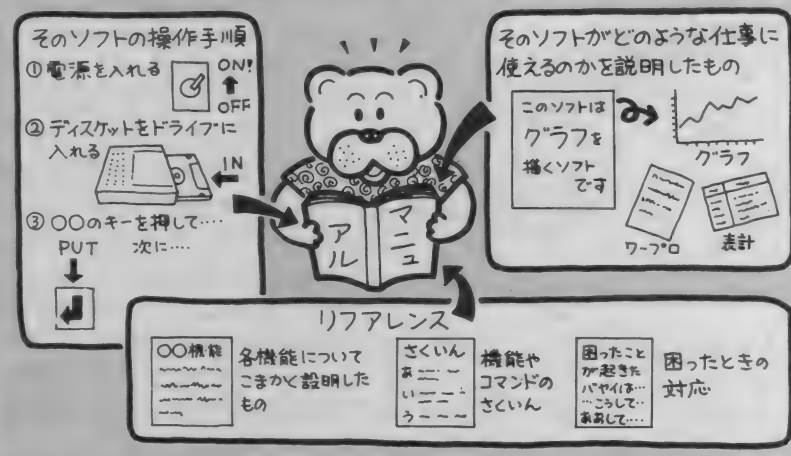 そのソフトの操作手順
①電源を入れる
ON!
OFF
②ディスケットをドライブに
入れる
IN
③○○のキーを押して‥‥
PUT 次に‥‥
マニュ
アル
そのソフトがどのような仕事に
使えるのかを説明したもの
このソフトは
グラフを
描くソフト
です
グラフ
ワープロ
表計
リファレンス
○○機能
各機能について
こまかく説明した
もの
さくいん
あ
い
う
機能や
コマンドの
さくいん
困ったこと
が起きた
バヤイは‥
‥こうして‥
ああして‥‥
困ったときの
対応